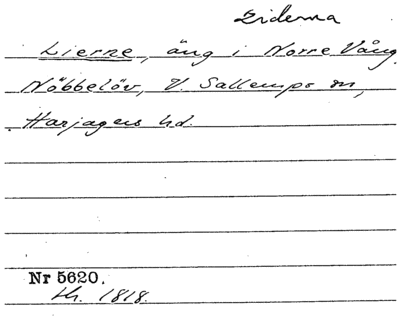 Liderna
Lierne, äng i Norre Vång
Nöbbelöv, V. Sallerups sn,
Harjagers hd.
Nr 5620.
Kr. 1818.